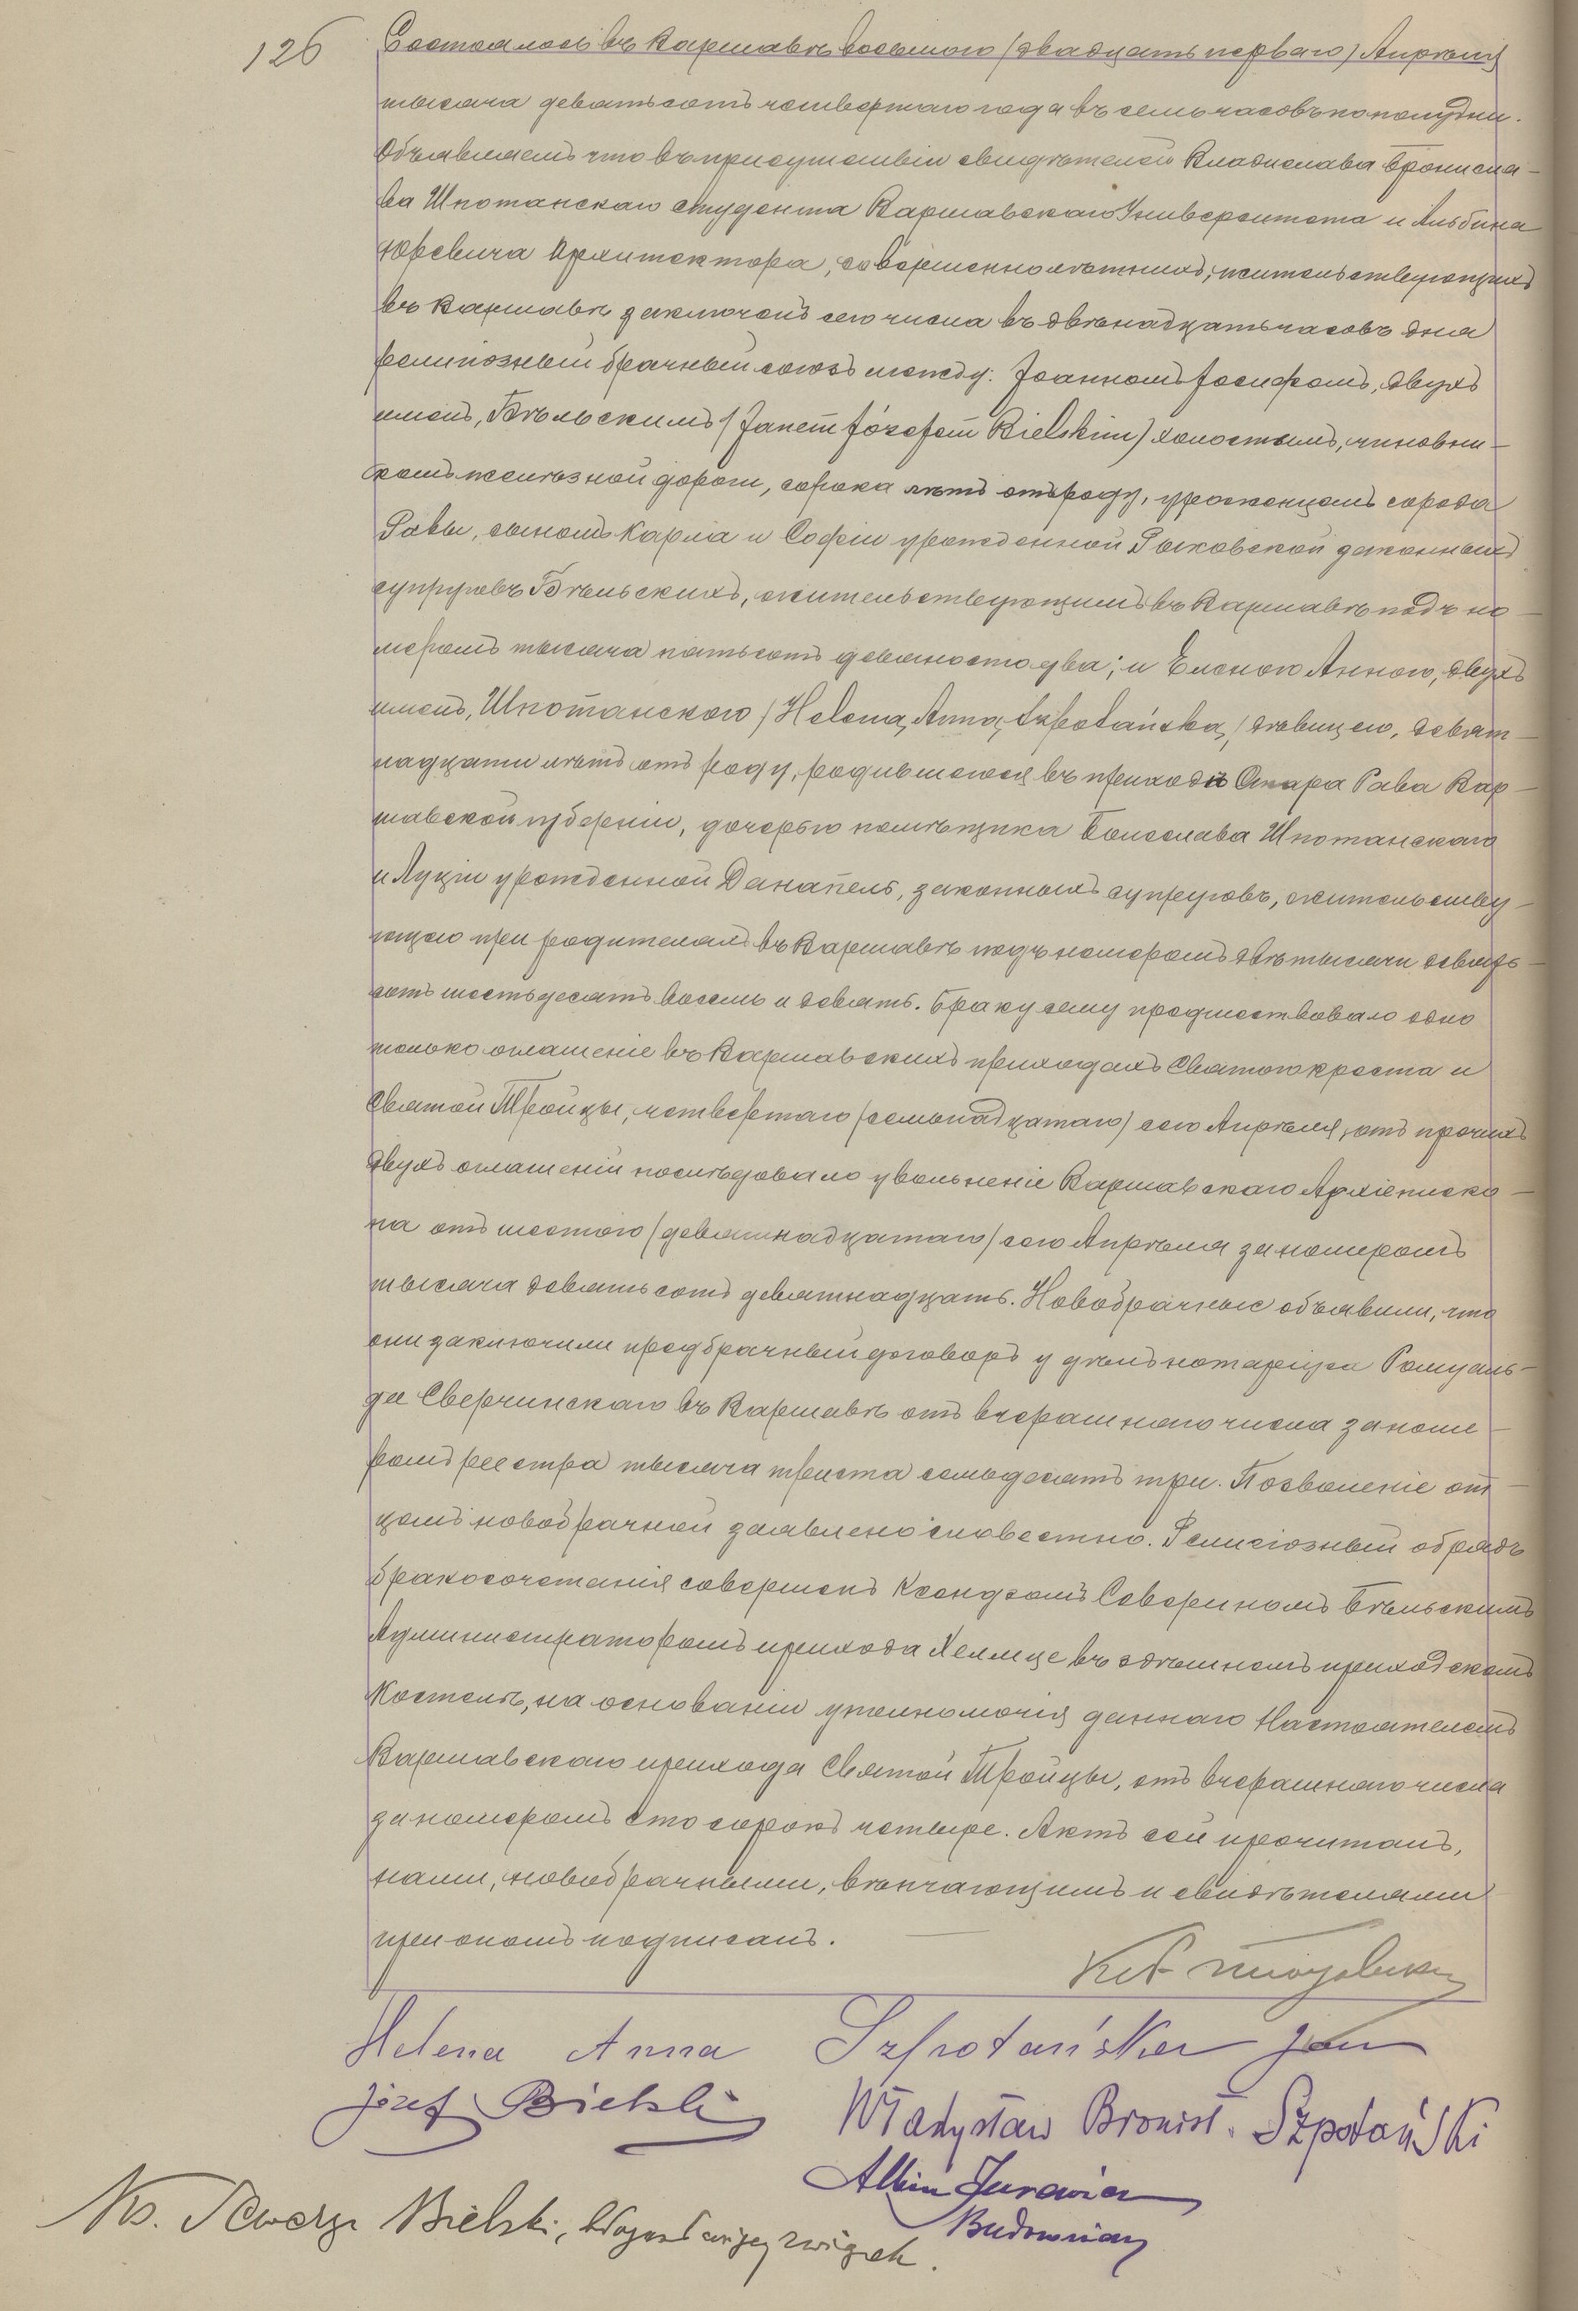 126
Состоялось въ Варшавѣ восьмого /двадцать перваго/ Апрѣля
тысяча девятьсотъ четвертаго года въ семь часовъ по полудни.
Объявляемъ что въ присутствіи свидѣтелей Владислава Бронисла-
ва Шпотанскаго студента Варшавскаго Университета и Альбина
Юревича Архитектора, совершеннолѣтнихъ, жительствующихъ
въ Варшавѣ заключенъ сего числа въ двѣнадцать часовъ дня
религіозный брачный союзъ между: Іоанномъ Іосифомъ, двухъ
именъ, Бѣльскимъ /Janem Józefem Bielskim/ холостымъ, чиновни-
комъ желѣзной дороги, сорока лѣтъ отъ роду, уроженцемъ города
Равы, сыномъ Карла и Софіи урожденной Рыковской законныхъ
супруговъ Бѣльскихъ, жительствующимъ въ Варшавѣ подъ но-
меромъ тысяча пятьсотъ девяносто два; и Еленою Анною, двухъ
именъ, Шпотанскою /Heleną Anną Szpotańską/ дѣвицею, девят-
надцати лѣтъ отъ роду, родившеюся въ приходѣ Стара Рава Вар-
шавской губерніи, дочерью помѣщика Болеслава Шпотанскаго
и Луціи урожденной Данапель, законныхъ супруговъ, жительству-
ющею при родителяхъ въ Варшавѣ подъ номеромъ двѣ тысячи девять-
сотъ шестьдесятъ восемь и девять. Браку сему предшествовало одно
только оглашеніе въ Варшавскихъ приходахъ Святого креста и
Святой Тройцы, четвертаго /семнадцатаго/ сего Апрѣля, отъ прочихъ
двухъ оглашеній послѣдовало увольненіе Варшавскаго Архіеписко-
па отъ шестого /девятнадцатаго/ сего Апрѣля за номеромъ
тысяча девятьсотъ девятнадцать. Новобрачные объявили, что
они заключили предбрачный договоръ у дѣлъ нотаріуса Ромуаль-
да Сверчинскаго въ Варшавѣ отъ вчерашняго числа за номе-
ромъ реестра тысяча триста семьдесятъ три. Позволеніе от-
цомъ новобрачной заявлено словестно. Религіозный обрядъ
бракосочетанія совершенъ Ксендзомъ Севериномъ Бѣльскимъ
Администраторомъ прихода Хелмце въ здѣшнемъ приходскомъ
Костелѣ, на основаніи уполномочія даннаго Настоятелемъ
Варшавскаго прихода Святой Тройцы, отъ вчерашняго числа
за номеромъ сто сорокъ четыре. Актъ сей прочитанъ,
нами, новобрачными, вѣнчающимъ и свидѣтелями
при ономъ подписанъ.
Helena Anna Szpotańska Jan
Józef Bielski Władysław Bronisł. Szpotański
Albin Jurewicz
Budowniczy
Ks. Seweryn Bielski, błogosławiący związek.